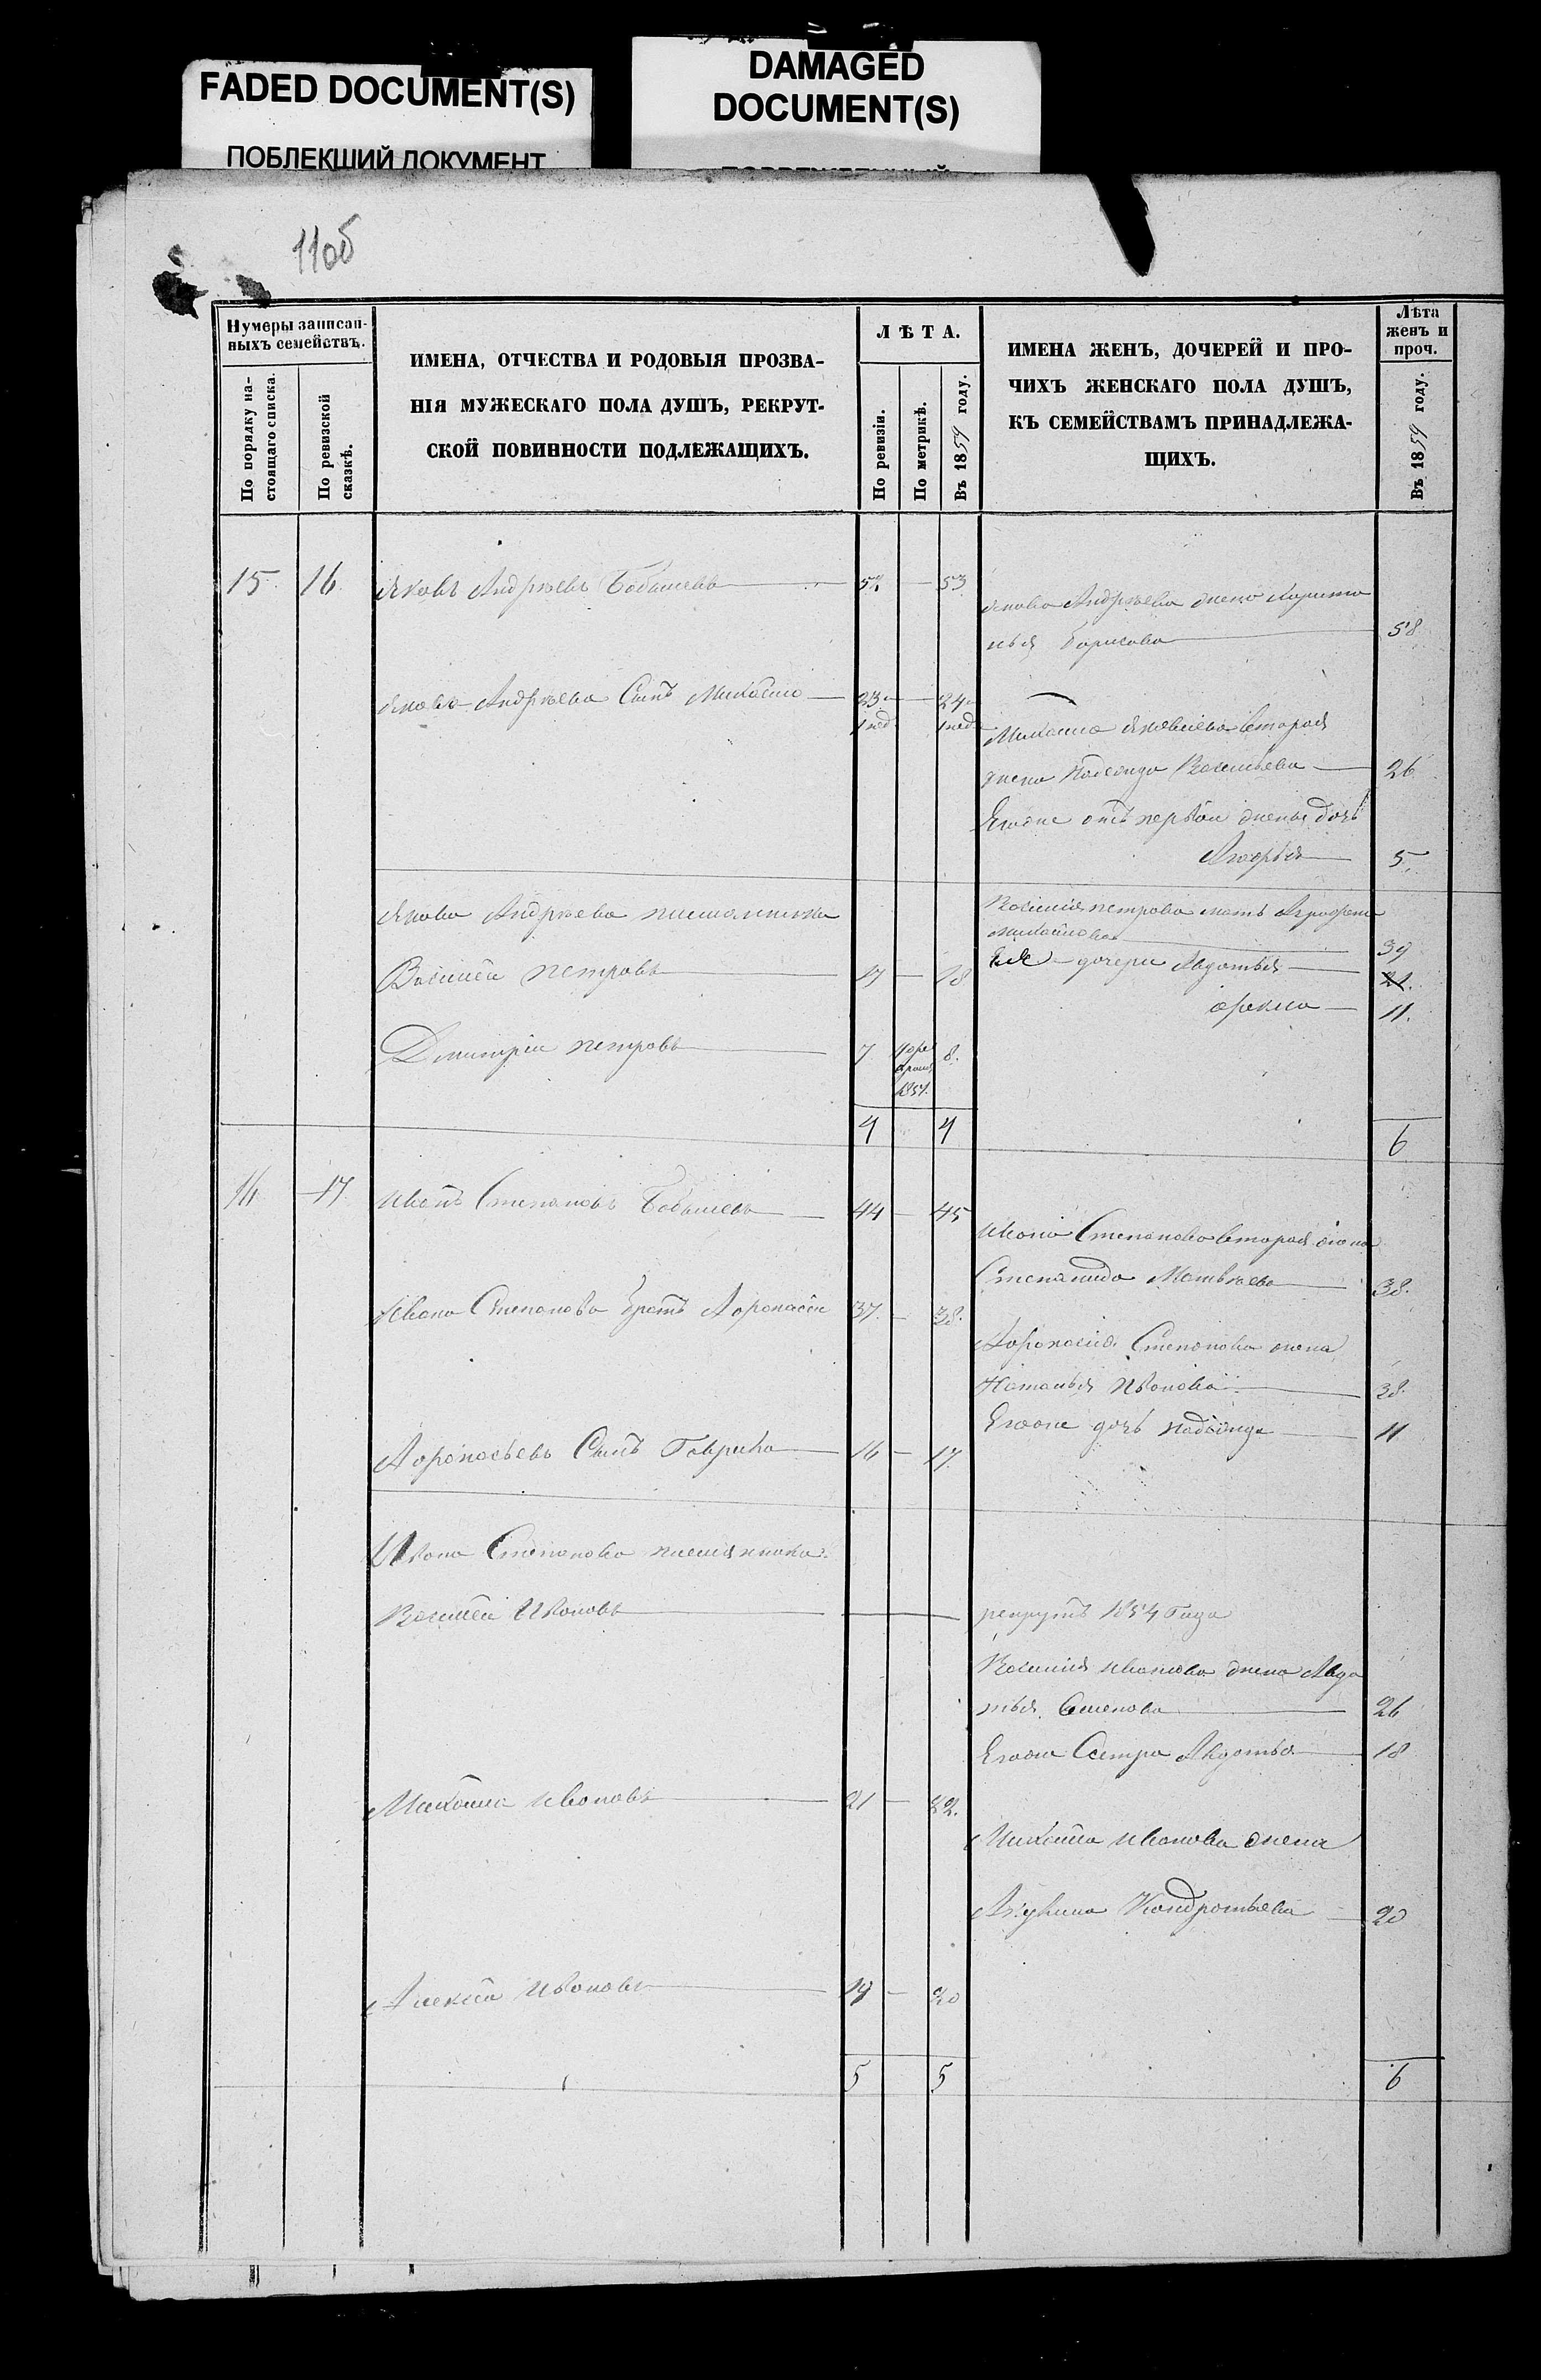 FADED DOCUMENT(S)
ПОБЛЕКШИЙ ДОКУМЕНТ
DAMAGED
DOCUMENT(S)
110б
Нумеры записан-
ныхъ семействъ.
По порядку на-
стоящаго списка.
По ревизской
сказкѣ.
ИМЕНА, ОТЧЕСТВА И РОДОВЫЯ ПРОЗВА-
НІЯ МУЖЕСКАГО ПОЛА ДУШЪ, РЕКРУТ-
СКОЙ ПОВИННОСТИ ПОДЛЕЖАЩИХЪ.
ЛѢТА.
По ревизіи.
По метрикѣ.
Въ 1859 году.
ИМЕНА ЖЕНЪ, ДОЧЕРЕЙ И ПРО-
ЧИХЪ ЖЕНСКАГО ПОЛА ДУШЪ,
КЪ СЕМЕЙСТВАМЪ ПРИНАДЛЕЖА-
ЩИХЪ.
Лѣта
женъ и
проч.
Въ 1859 году.
15 16 Яковъ Андрѣевъ 52 53
Якова Андрѣева жена
Борисова 58
Якова Андрѣева Сынъ Михайло 23 24
1 нед 1 нед
Михайла Яковлева вторая
жена Надежда Васильева 26
Егоже отъ первой жены дочь
5
Якова Андрѣева племянники
Василія Петрова мать
Михайлова 39
Василей Петровъ 17 18
дочери Авдотья 21.
11.
Дмитрій Петровъ 7 8.
4 4 6
16 17 Иванъ Степановъ 44 45
Ивана Степанова вторая жена
Степанида Матвѣева 38.
Ивана Степанова братъ Афонасій 37. 38.
Афонасія Степанова жена
Наталья Иванова 38.
Егоже дочь Надежда 11
Афонасьевъ Сынъ Гаврила 16 17.
Ивана Степанова племянники
Василей Ивановъ рекрутъ 1854 Года
Василія Иванова жена Авдо
тья Семенова 26
Егоже Сестра Авдотья 18
Михайла Ивановъ 21 22.
Михайла Иванова жена
Кондратьева 20
Алексѣй Ивановъ 19 20
5 5 6